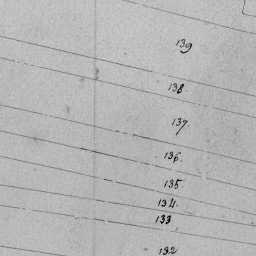 139
138
137.
136.
135.
134.
133
132